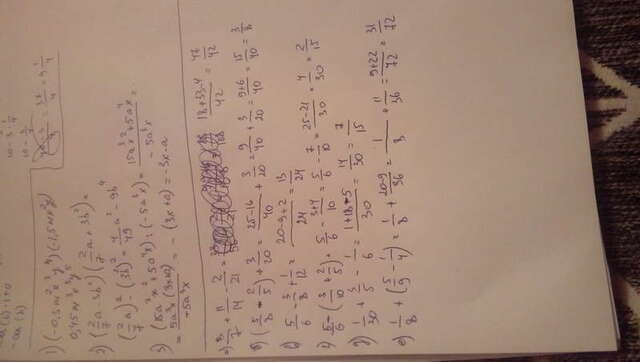 1) (-0,3a²x³y⁴)(-1,5ax²y)
0,45a³x⁵y⁵
2) (2/7 a - 3b²)(2/7 a + 3b²) =
(2/7 a)² - (3b²)² = 4/49 a² - 9b⁴
3) (15a³x² + 5a⁴x) : (-5a³x) = (15a³x² + 5a⁴x)/(-5a³x) =
= 5a³x(3x+a)/(-5a³x) = -(3x+a) = -3x-a
a) 3/7 + 11/14 - 2/21 = (18+33-4)/42 = 47/42
б) (5/8 - 2/5) + 3/20 = (25-16)/40 + 3/20 = 9/40 + 3/20 = (9+6)/40 = 15/40 = 3/8
в) 5/6 - 3/8 + 1/12 = (20-9+2)/24 = 13/24
г) 5/6 - (3/10 + 2/5) = 5/6 - (3+4)/10 = 5/6 - 7/10 = (25-21)/30 = 4/30 = 2/15
д) 1/30 + 3/5 - 1/6 = (1+18-5)/30 = 14/30 = 7/15
е) 1/8 + (5/9 - 1/4) = 1/8 + (20-9)/36 = 1/8 + 11/36 = (9+22)/72 = 31/72